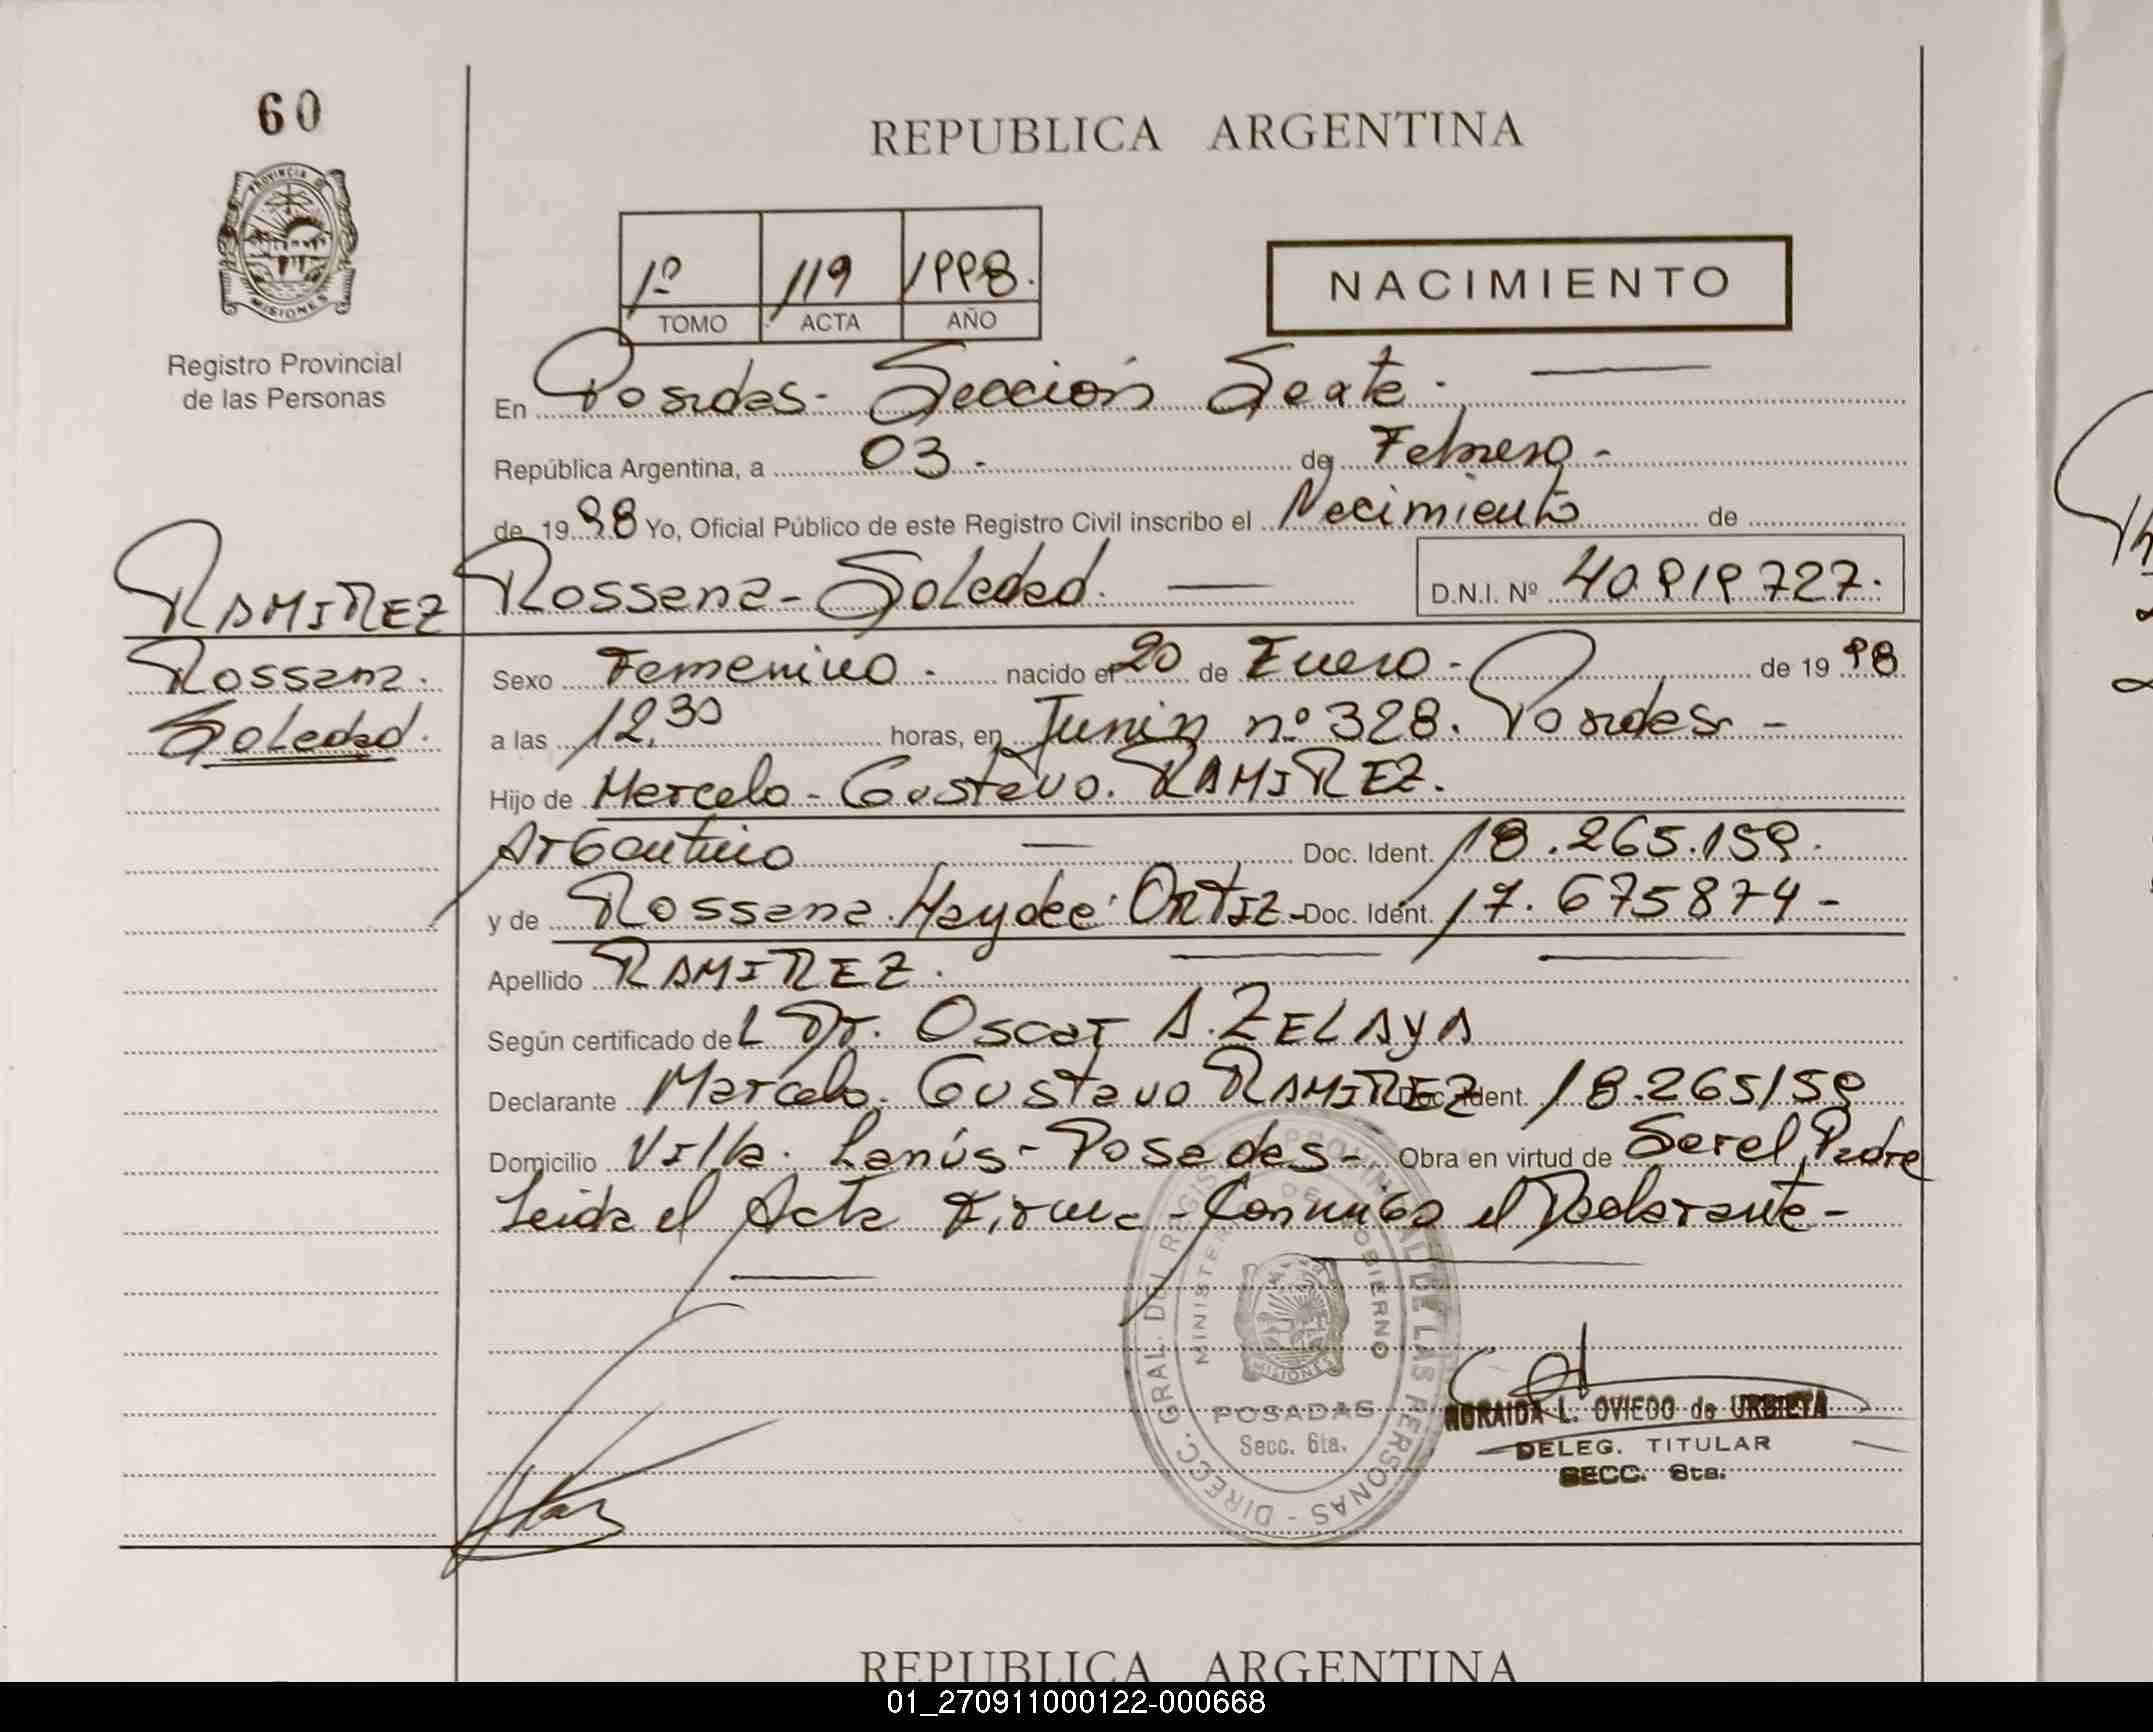 60
REPUBLICA ARGENTINA
PROVINCIA DE
MISIONES
1º 119 1998.
TOMO ACTA AÑO
NACIMIENTO
Registro Provincial
de las Personas
En Posadas - Sección Sexta.
República Argentina, a 03 - de Febrero -
de 1998 Yo, Oficial Público de este Registro Civil inscribo el Nacimiento de
RAMIREZ Rossana - Soledad. D.N.I. Nº 40.919.727.
Rossana. Sexo Femenino. nacido el 20 de Enero - de 1998
Soledad. a las 12,30 horas, en Junín nº 328. Posadas -
Hijo de Marcelo - Gustavo. RAMIREZ.
Argentino Doc. Ident. 18.265.159.
y de Rossana Haydee ORTIZ - Doc. Ident. 17.675874 -
Apellido RAMIREZ.
Según certificado del Dr. Oscar A. ZELAYA
Declarante Marcelo. Gustavo RAMIREZ Doc. Ident. 18.265159
Domicilio Villa. Lanús - Posadas - Obra en virtud de Ser el Padre
Leida el Acta Firma - Conmigo el Declarante -
DIRECC. GRAL. DEL REGISTRO PROVINCIAL DE LAS PERSONAS -
MINISTERIO DE GOBIERNO
MISIONES
POSADAS
Secc. 6ta.
NORAIDA L. OVIEDO de URBIETA
DELEG. TITULAR
SECC. 6ta.
REPUBLICA ARGENTINA
01_270911000122-000668